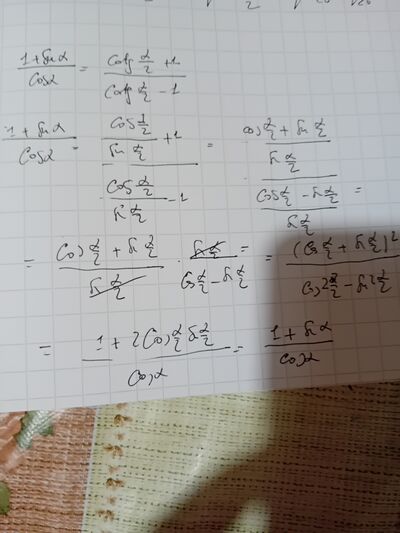 \frac{1+\sin\alpha}{\cos\alpha} = \frac{\cotg\frac{\alpha}{2}+1}{\cotg\frac{\alpha}{2}-1}
\frac{1+\sin\alpha}{\cos\alpha} = \frac{\frac{\cos\frac{\alpha}{2}}{\sin\frac{\alpha}{2}}+1}{\frac{\cos\frac{\alpha}{2}}{\sin\frac{\alpha}{2}}-1} = \frac{\frac{\cos\frac{\alpha}{2}+\sin\frac{\alpha}{2}}{\sin\frac{\alpha}{2}}}{\frac{\cos\frac{\alpha}{2}-\sin\frac{\alpha}{2}}{\sin\frac{\alpha}{2}}} =
= \frac{\cos\frac{\alpha}{2}+\sin\frac{\alpha}{2}}{\sin\frac{\alpha}{2}} \cdot \frac{\sin\frac{\alpha}{2}}{\cos\frac{\alpha}{2}-\sin\frac{\alpha}{2}} = = \frac{(\cos\frac{\alpha}{2}+\sin\frac{\alpha}{2})^2}{\cos^2\frac{\alpha}{2}-\sin^2\frac{\alpha}{2}}
= \frac{1+2\cos\frac{\alpha}{2}\sin\frac{\alpha}{2}}{\cos\alpha} = \frac{1+\sin\alpha}{\cos\alpha}